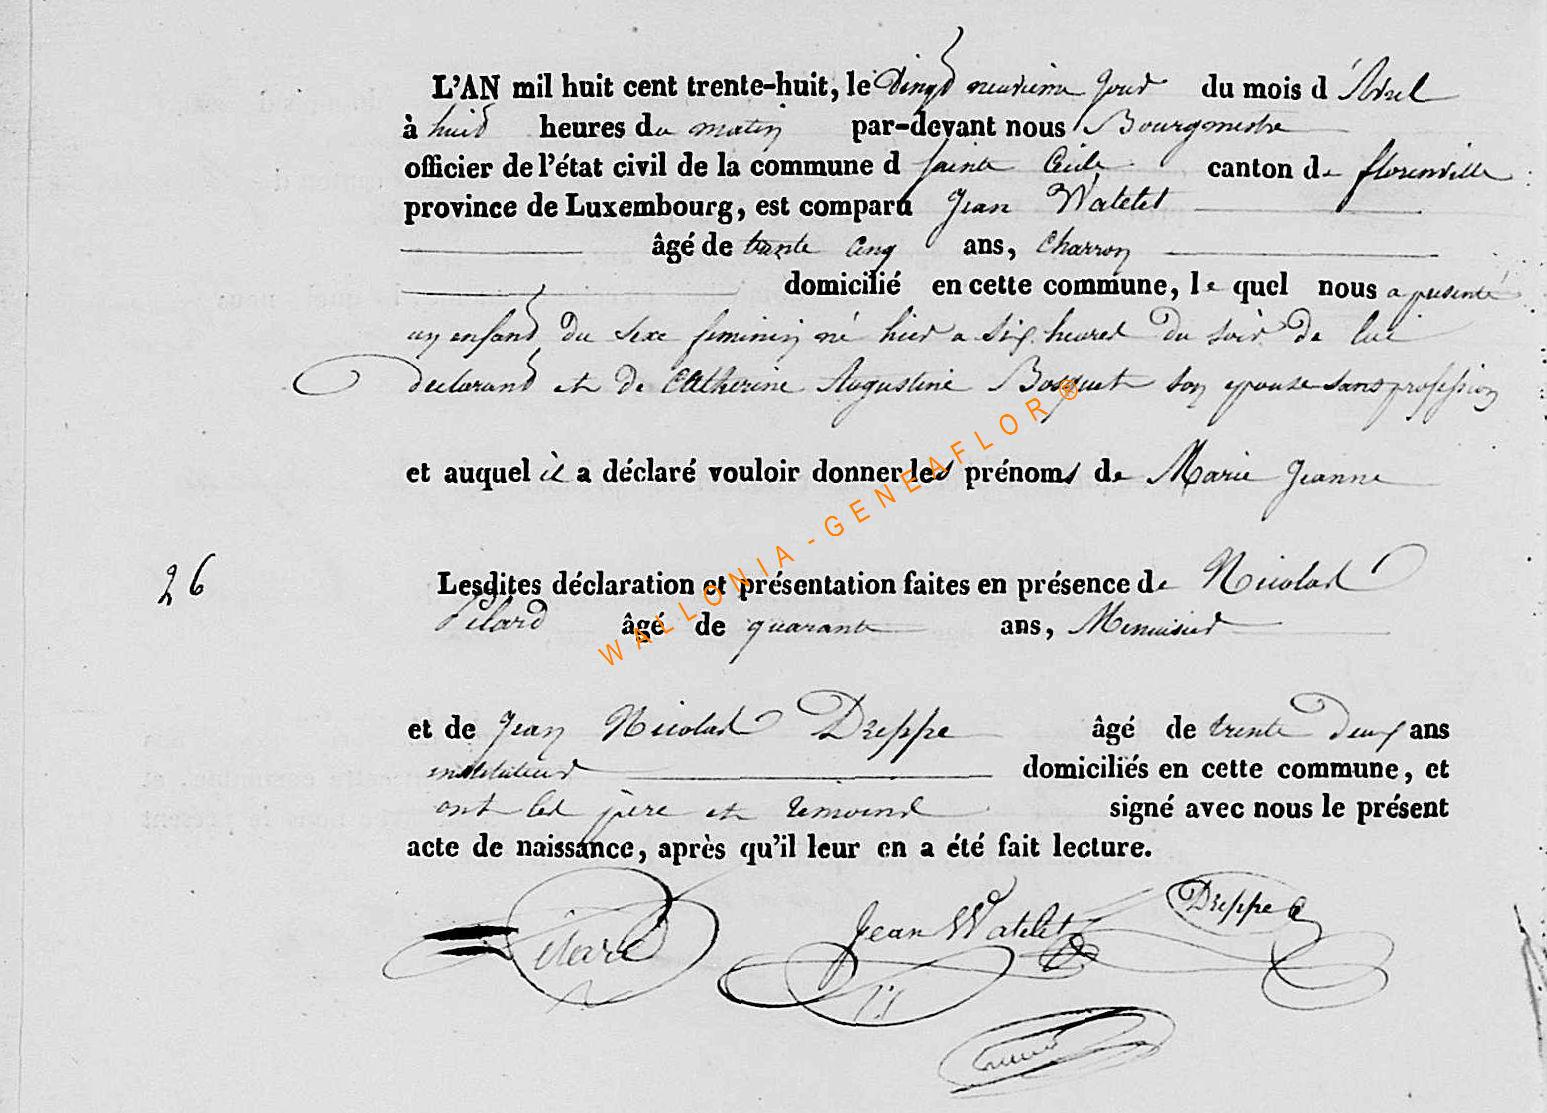 L'AN mil huit cent trente-huit, le vingt neuvieme jour du mois d'Avril
à huit heures du matin par-devant nous Bourgmestre
officier de l'état civil de la commune d Sainte Cécile canton de florenville
province de Luxembourg, est comparu Jean Watelet
âgé de trente cinq ans, Charron
domicilié en cette commune, le quel nous a présenté
un enfant du sexe feminin né hier a six heures du soir de lui
declarant et de Catherine Augustine Bosquet son epouse sans profession
et auquel il a déclaré vouloir donner les prénoms de Marie Jeanne
26
Lesdites déclaration et présentation faites en présence de Nicolas
Pilard âgé de quarante ans, Menuisier
et de Jean Nicolas Dreppe âgé de trente deux ans
instituteur domiciliés en cette commune, et
ont les père et temoins signé avec nous le présent
acte de naissance, après qu'il leur en a été fait lecture.
Pilard Jean Watelet Dreppe
WALLONIA - GENEAFLOR ®